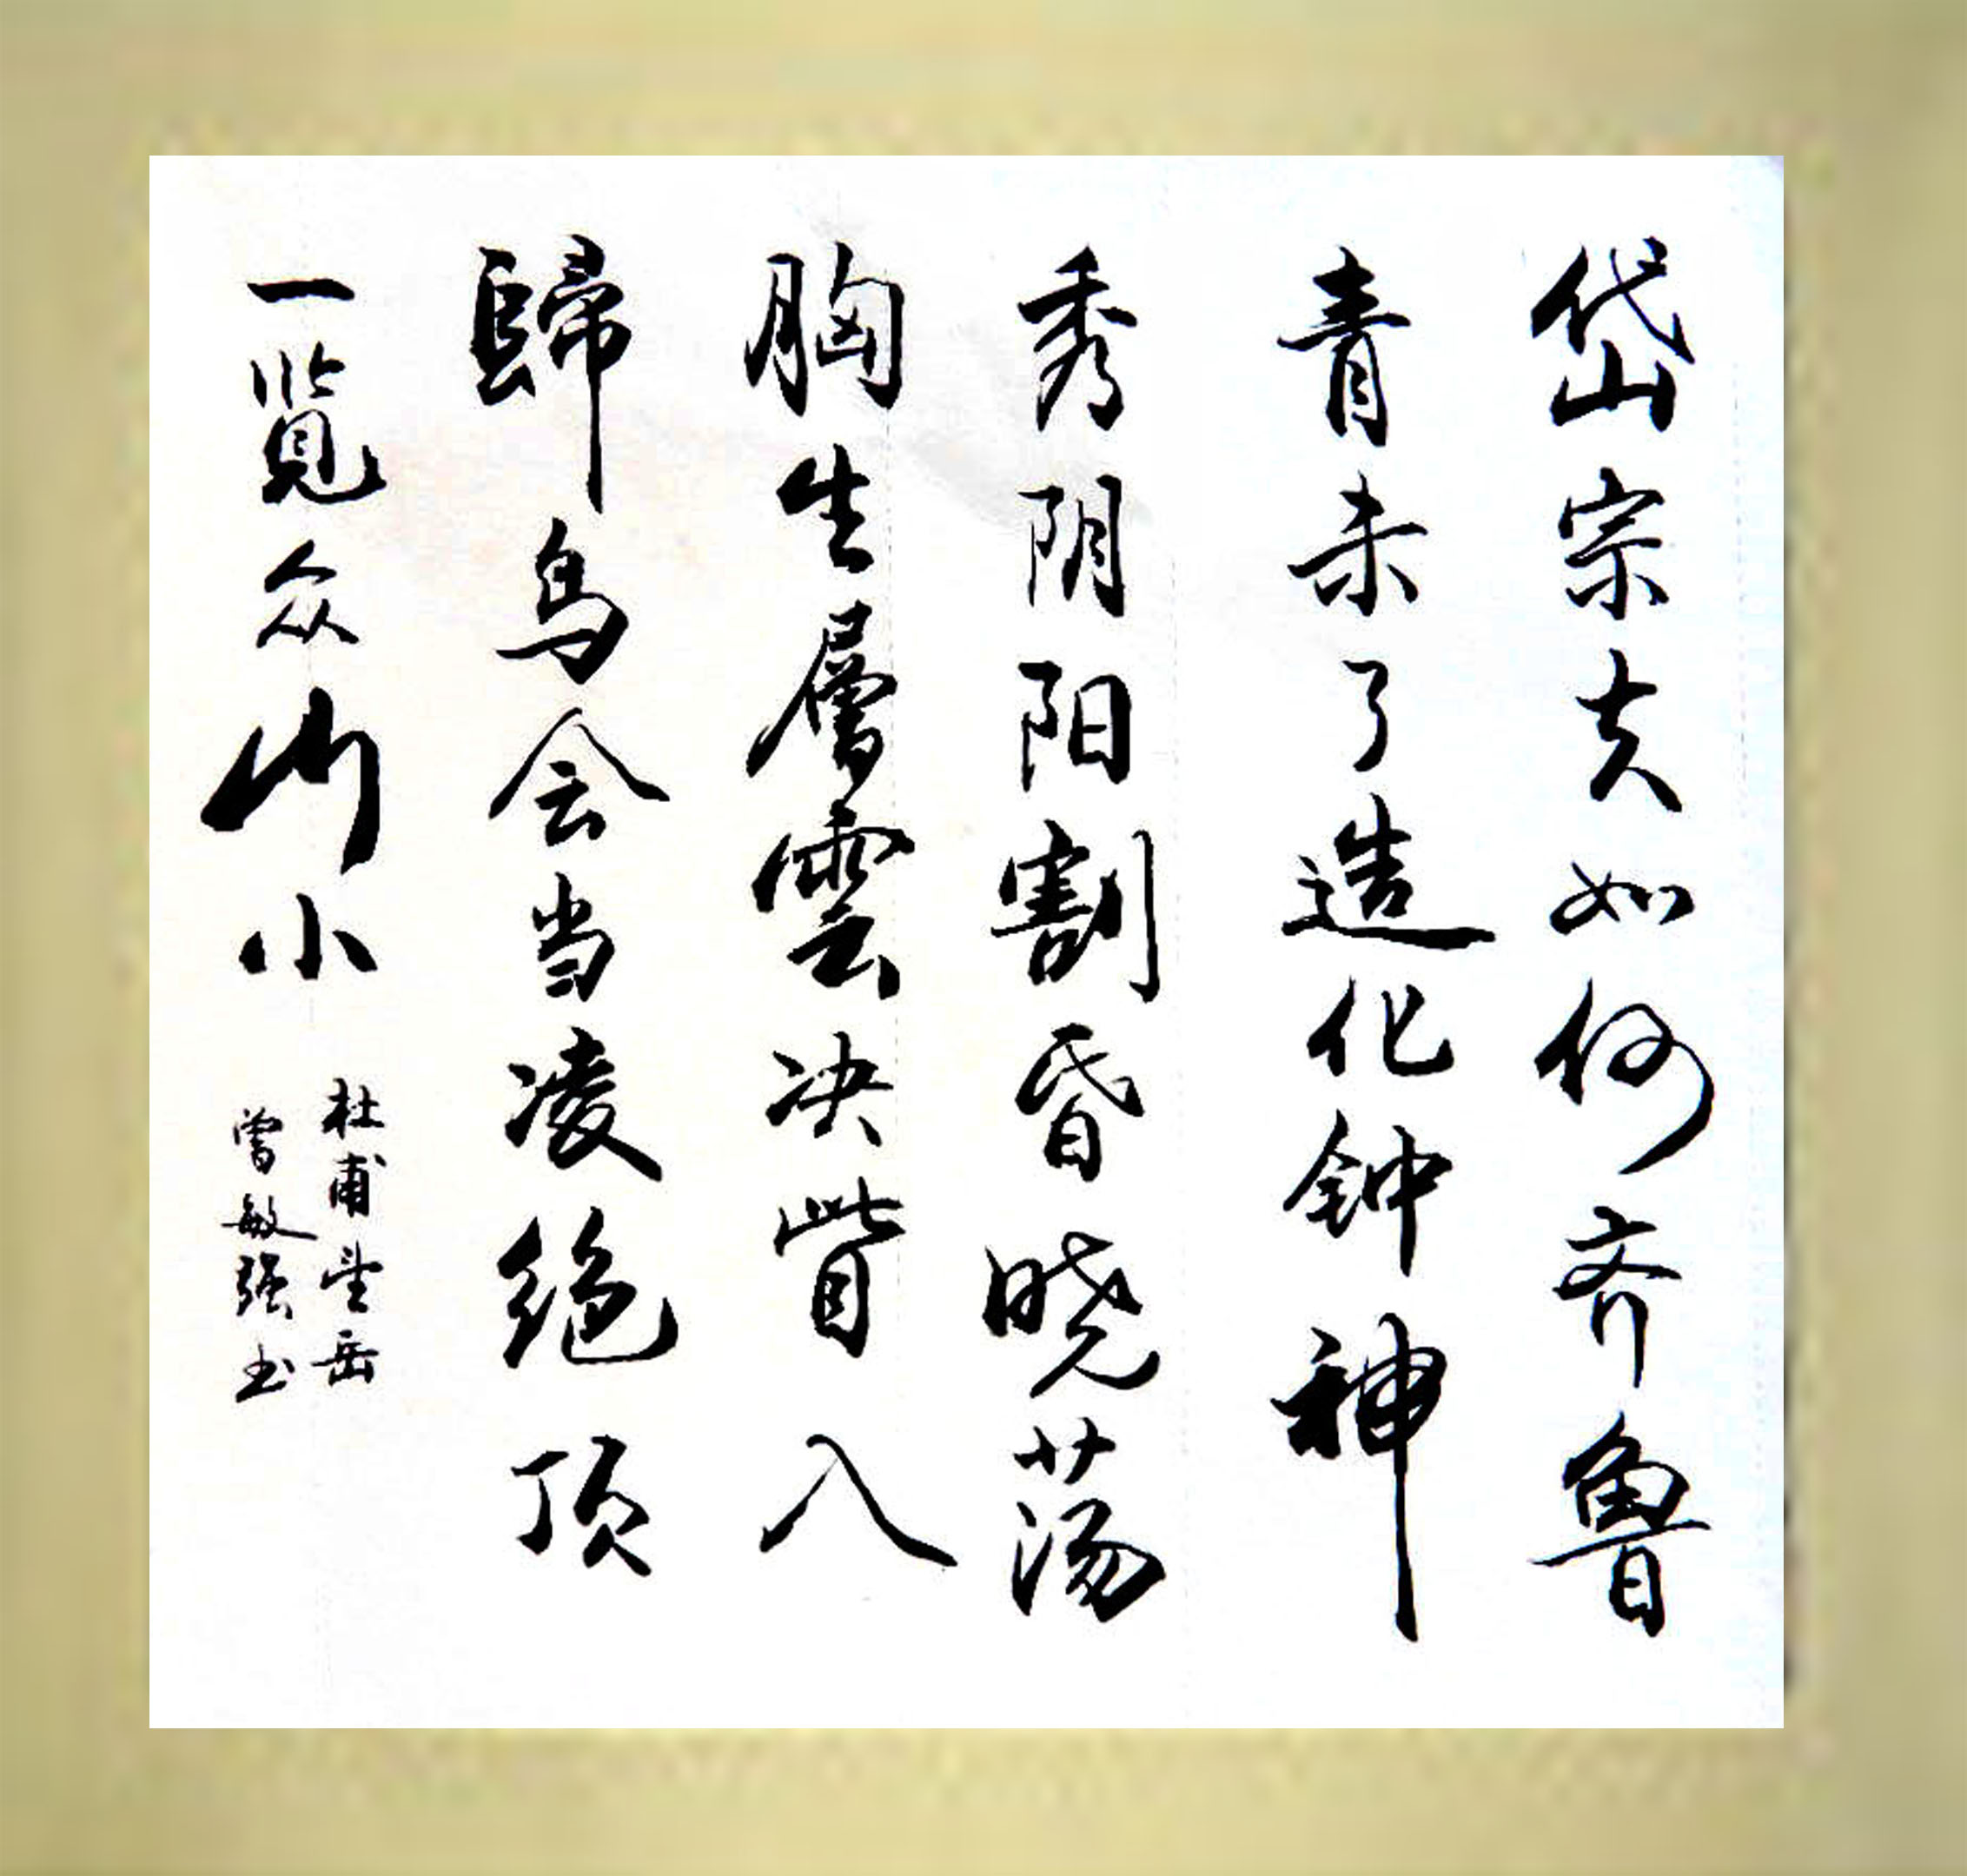 岱宗夫如何齐鲁
青未了造化钟神
秀阴阳割昏晓荡
胸生層雲决眥入
歸鸟会当凌绝顶
一览众山小
杜甫望岳
曾敏强书